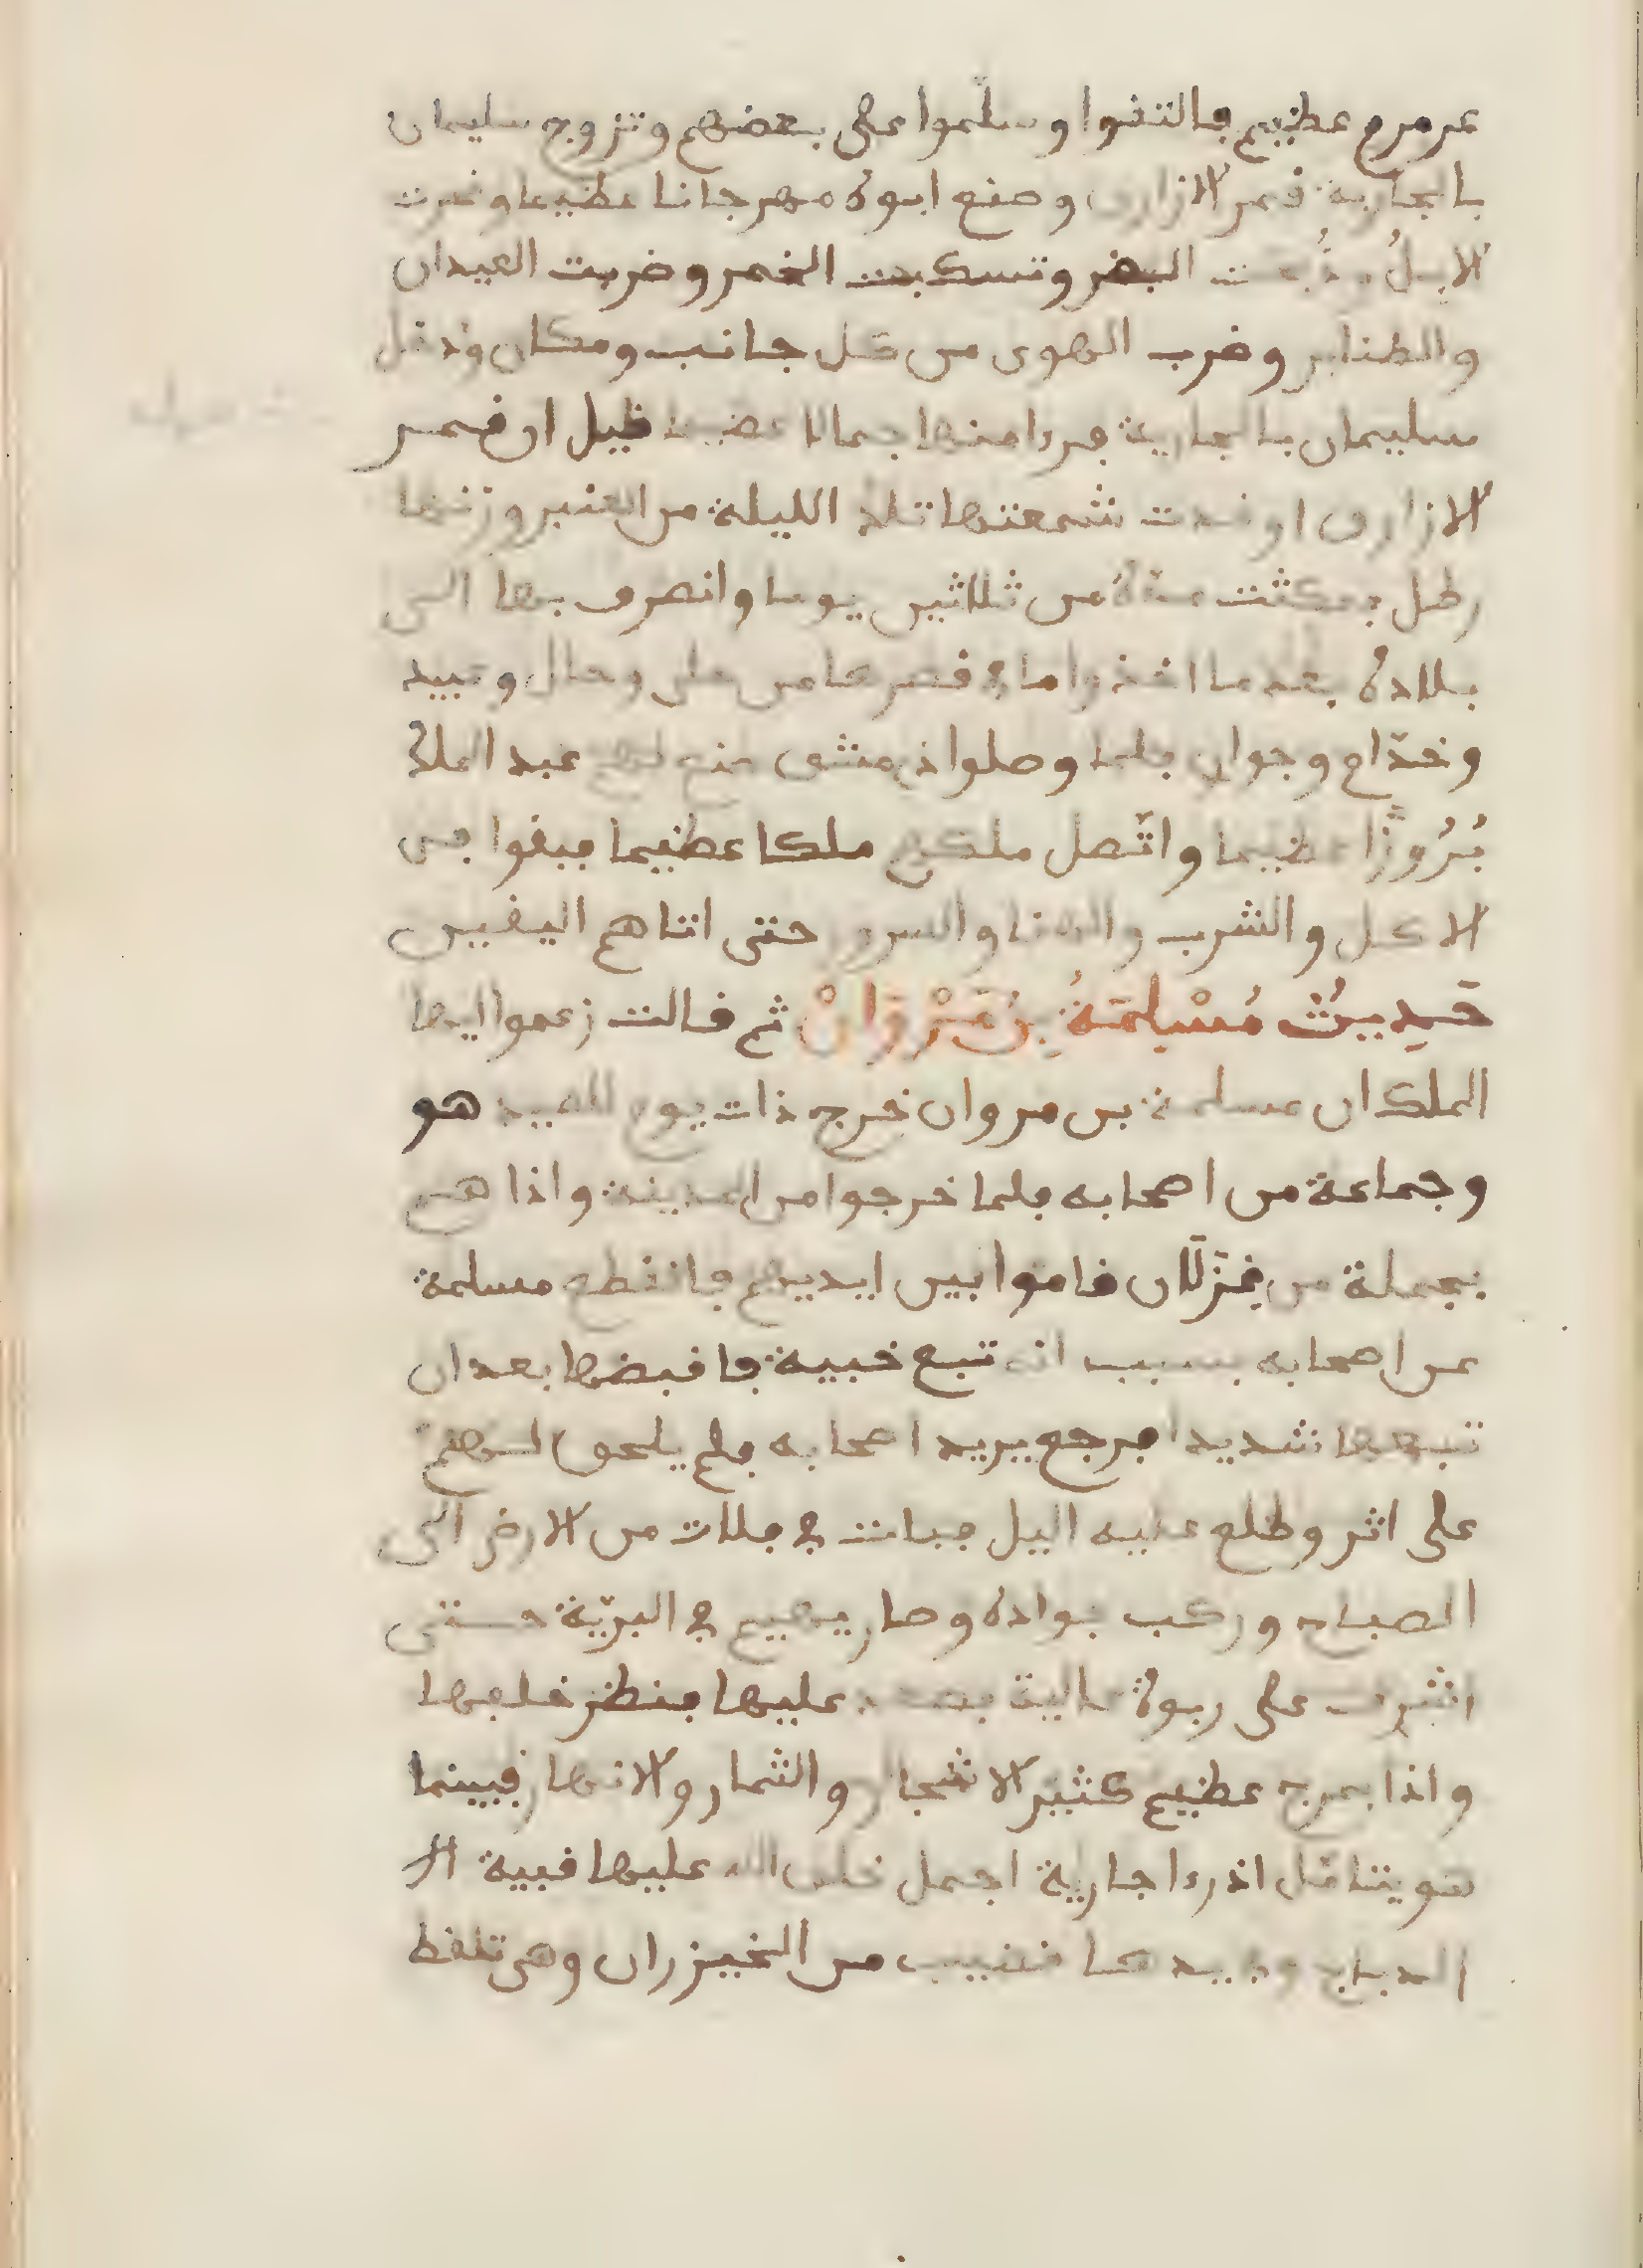 عرمرم عظيم فالتقوا وسلّموا على بعضهم وتزوج سليمان
بالجارية قمر الازارى وصنع ابوه مهرجانا عظيما ونحرت
الابلُ وذُبحت البقر وتسكبت الخمر وضربت العيدان
والطنابر وضرب الهوى من كل جانب ومكان ودخل
سليمان بالجارية فرءا منها جمالا عظيما فيل ان قمر
الازارى اوقدت شمعتها تلك الليلة من العنبر وزنها
رطل فمكثت مدّة من ثلاثين يوما وانصرف بها الى
بلاده بعدما اخذوا ما في قصرها من حلى وحال وعبيد
وخدّام وجوار فلما وصلوا دمشق صنع لهم عبد الملك
بُرُوزًا عظيما واتّصل ملكهم ملكا عظيما فبقوا في
الاكل والشرب والهنا والسرور حتى اتاهم اليقين
حَدِيثُ مُسْلِمَةُ بِنُ مَرْوَانْ ثم قالت زعموا ايها
الملك ان مسلمة بن مروان خرج ذات يوم للصيد هو
وجماعة من اصحابه فلما خرجوا من المدينة واذا هم
بجملة من غزلان قاموا بين ايديهم فانقطع مسلمة
عن اصحابه بسبب انه تبع خبية فاقبضها بعد ان
تبعها شديدا فرجع يريد اصحابه فلم يلحق لهم
على اثر وطلع عليه اليل فبات في فلات من الارض الى
الصباح وركب جواده وصار يهيم في البريّة حتى
اشرف على ربوة عالية فصعد عليها فنظر خلفها
واذا بمرج عظيم كثير الاشجار والثمار والانهار فبينما
هو يتامّل اذ رءا جارية اجمل خلق الله عليها فبية
الديباج وبيدها قضيب من الخيزران وهى تلفط